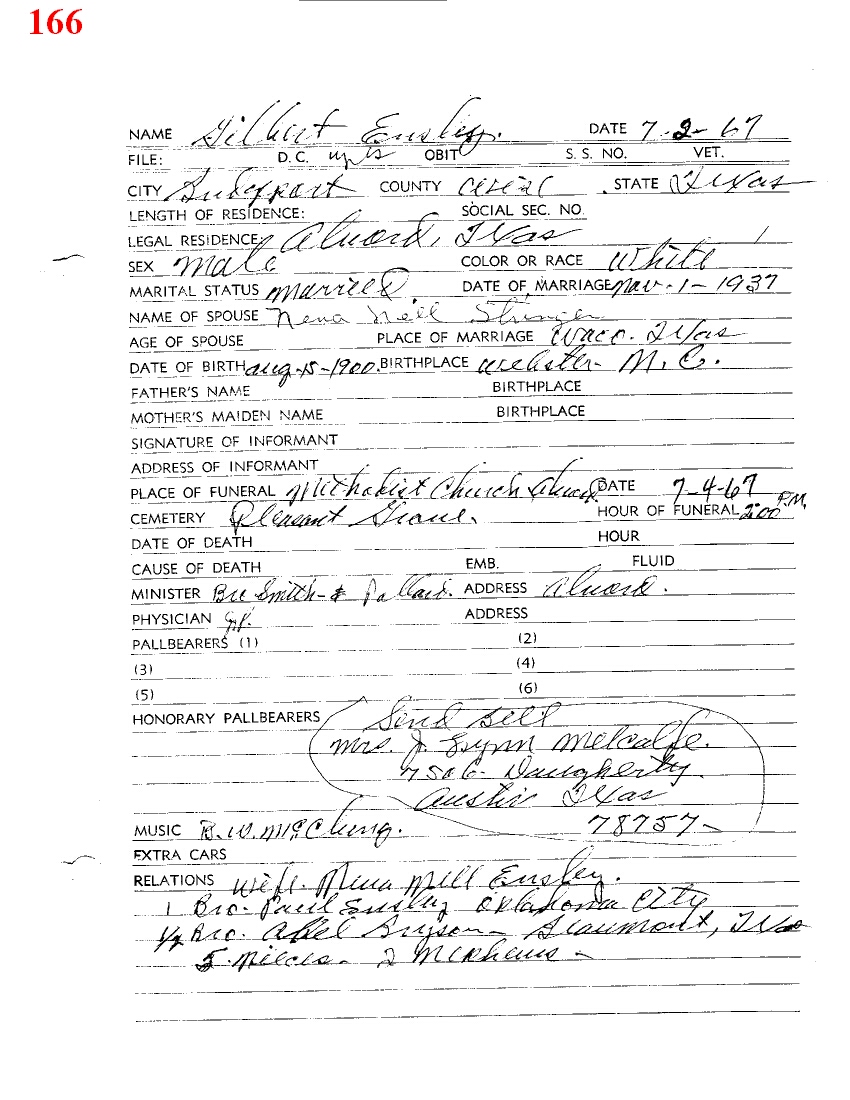 166
NAME Gilbert Ensley. DATE 7-2-67
FILE: D.C. OBIT S.S. NO. VET.
CITY Bridgeport COUNTY STATE Texas
LENGTH OF RESIDENCE: SOCIAL SEC. NO.
LEGAL RESIDENCE Alvord, Texas
SEX Male COLOR OR RACE White
MARITAL STATUS Married. DATE OF MARRIAGE Nov-1-1937
NAME OF SPOUSE Nena Nell Stringer
AGE OF SPOUSE PLACE OF MARRIAGE Waco. Texas
DATE OF BIRTH Aug-15-1900. BIRTHPLACE Webster- N.C.
FATHER'S NAME BIRTHPLACE
MOTHER'S MAIDEN NAME BIRTHPLACE
SIGNATURE OF INFORMANT
ADDRESS OF INFORMANT
PLACE OF FUNERAL Methodist Church Alvord DATE 7-4-67
CEMETERY Pleasant Grove. HOUR OF FUNERAL 2:00 P.M.
DATE OF DEATH HOUR
CAUSE OF DEATH EMB. FLUID
MINISTER Bro Smith-& Pallard. ADDRESS Alvord.
PHYSICIAN J.P. ADDRESS
PALLBEARERS (1) (2)
(3) (4)
(5) (6)
HONORARY PALLBEARERS Send Bill
Mrs. J. Lynn Metcalfe.
7506- Daugherty
Austin Texas
MUSIC B.W. McClung. 78757-
EXTRA CARS
RELATIONS Wife. Nena Nell Ensley.
1 Bro. Paul Ensley Oklahoma City
1/2 Bro. Abel Bryson- Beaumont, Texas
5- Nieces- 2 Nephews-